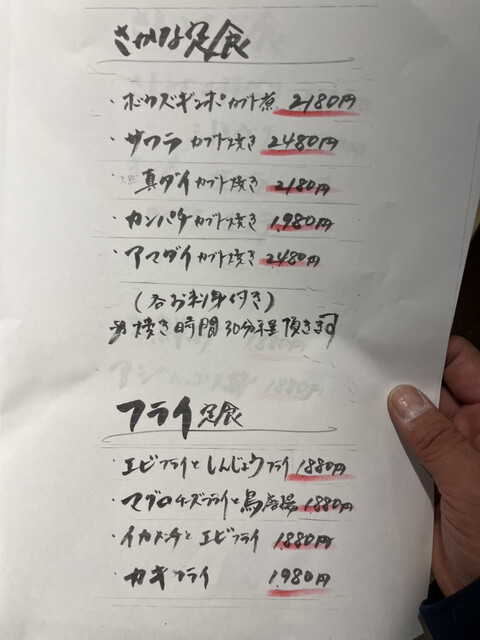 さかな定食
・ボウズギンポカブト煮 2180円
・サワラカブト焼き 2480円
真ダイカブト焼き 2180円
・カンパチカブト焼き 1980円
・アマダイカブト焼き 2480円
(各お刺身付き)
※焼き時間30分程頂きます
フライ定食
・エビフライとしんじょうフライ 1880円
・マグロチーズフライと鳥唐揚 1880円
・イカメンチとエビフライ 1880円
・カキフライ 1980円